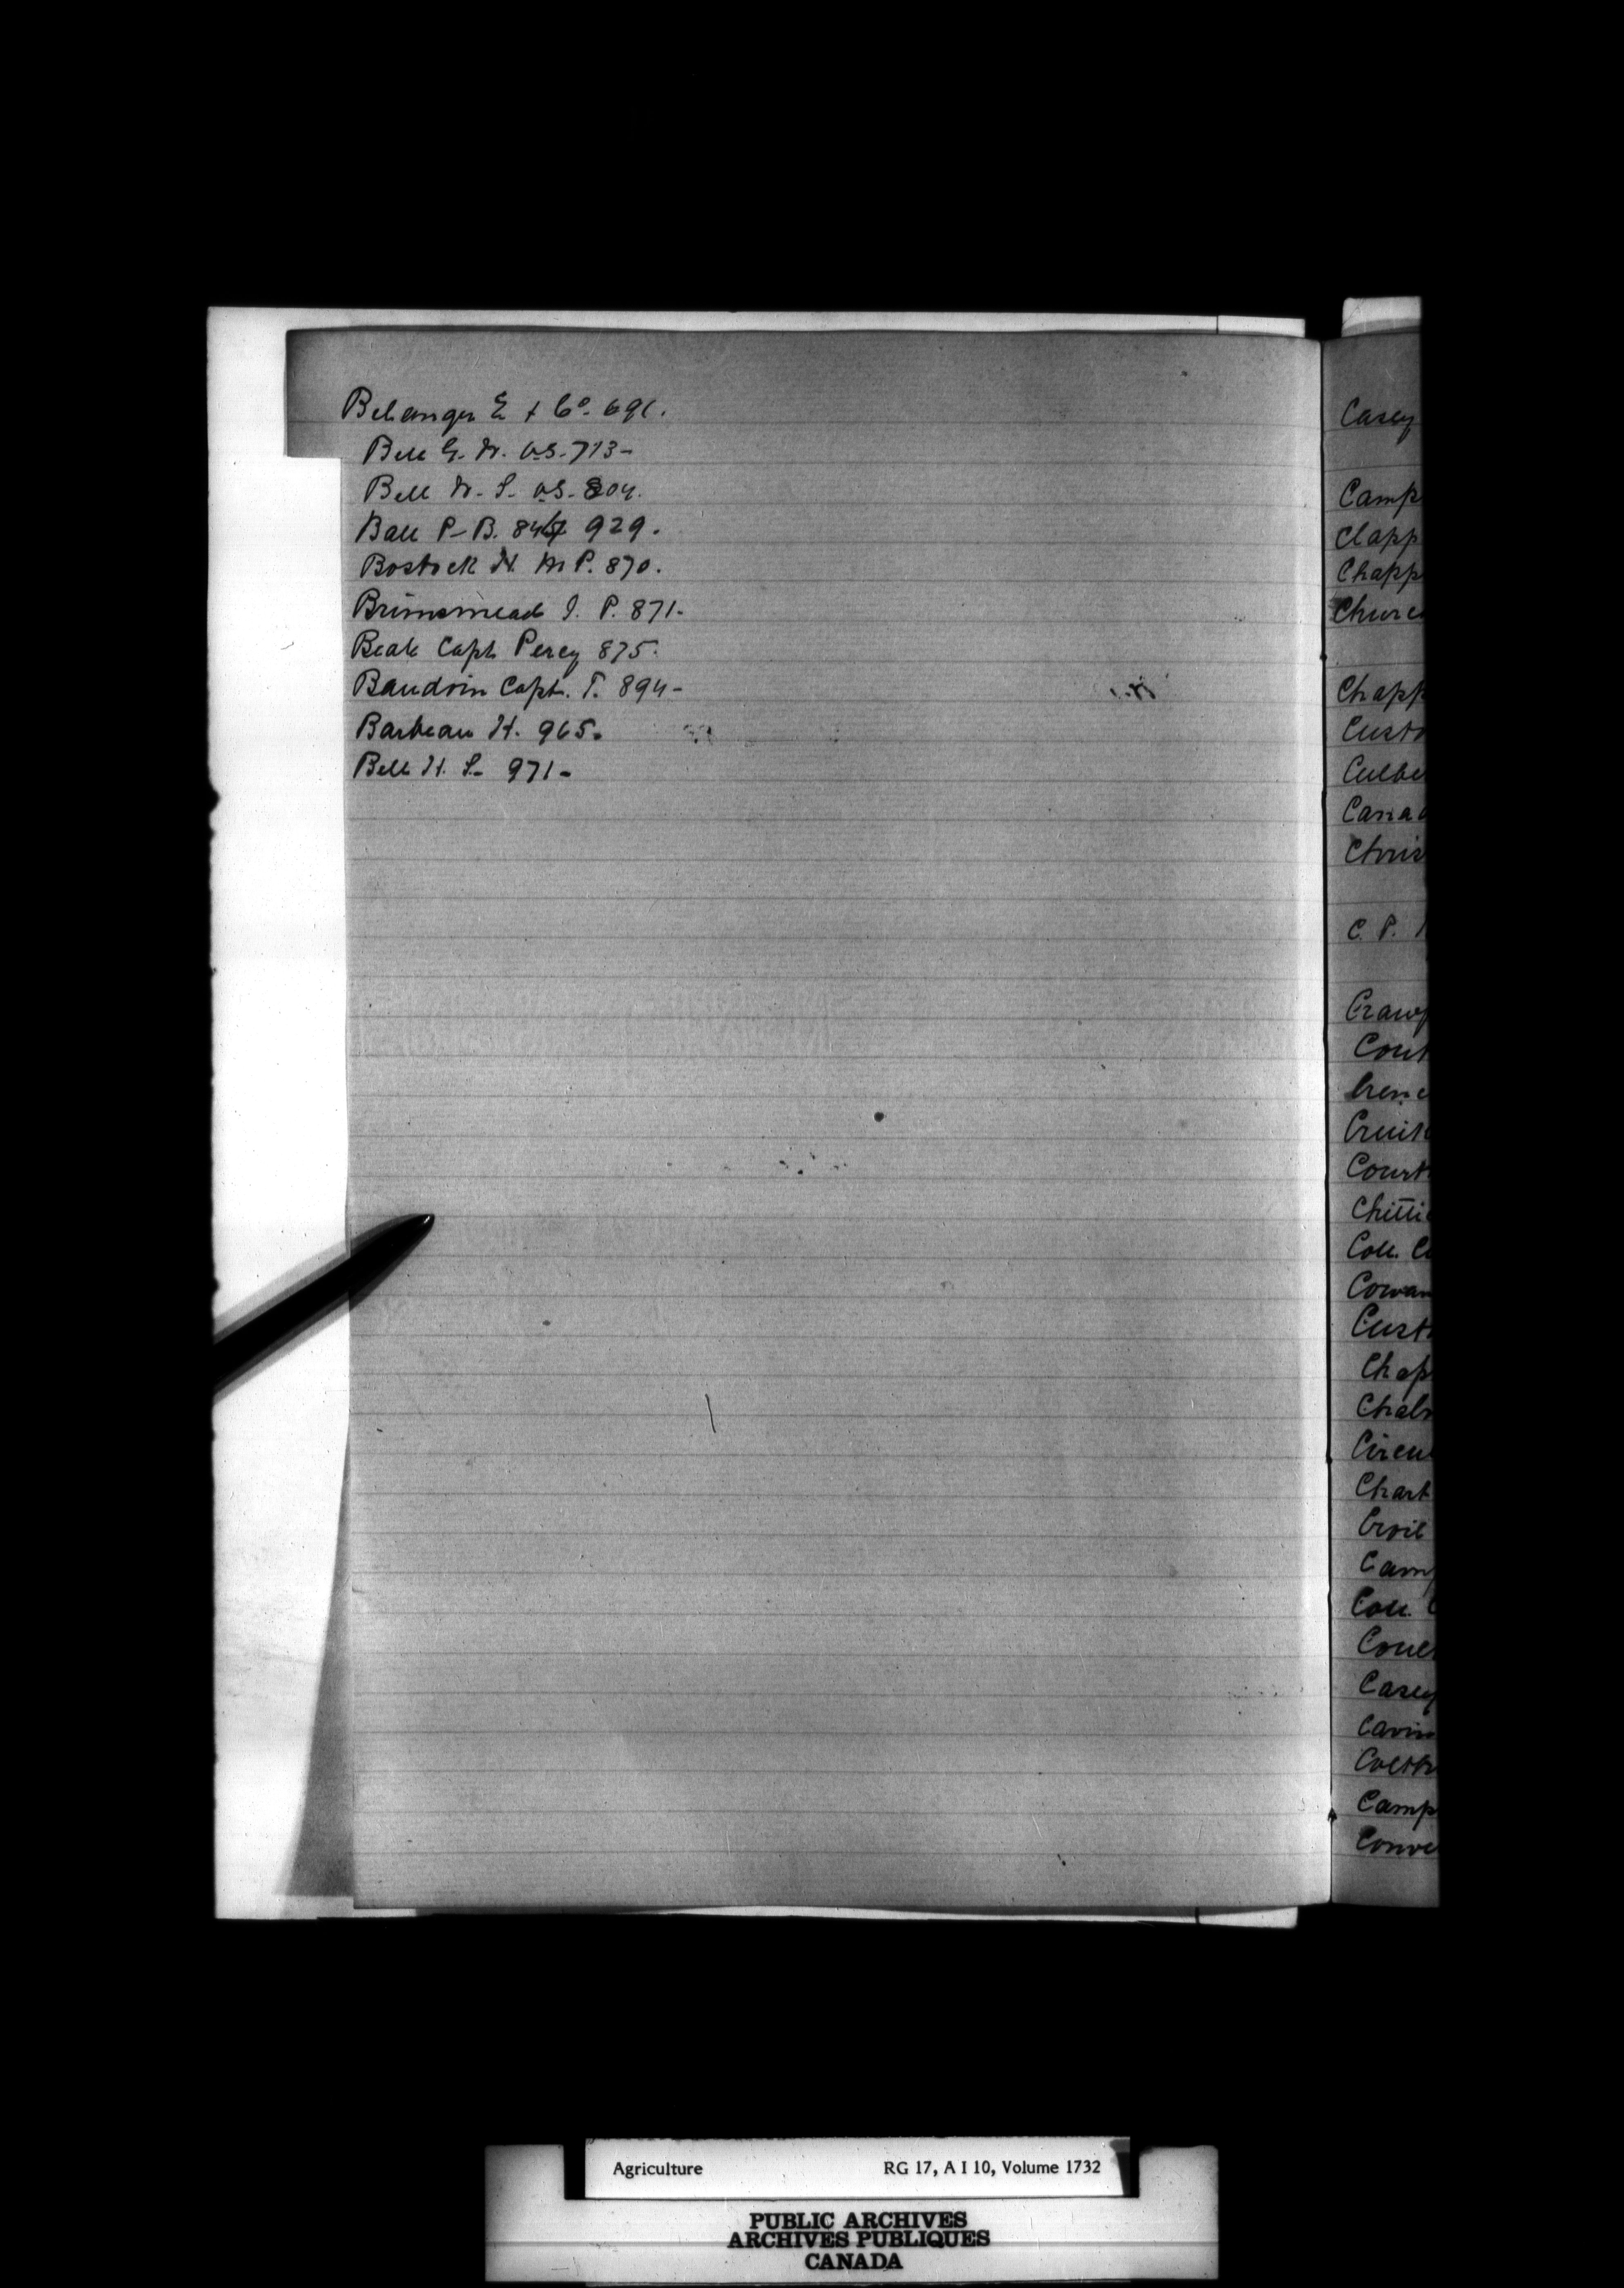 Belanger E & Co. 691.
Bell G. W. VS. 713-
Bell W. S. VS. 804.
Ball P-B. 847 929.
Bostock H. M P. 870.
Brimsmead I. P. 871-
Beale Capt Percy 875.
Baudoin Capt. T. 894-
Barbeau H. 965.
Bell H. S- 971-
Casey
Camp
Clapp
Chapp
Churc
Chapp
Custo
Culbe
Canad
Chris
C. P.
Crawf
Cout
Cruik
Court
Chitti
Coll. C
Cowan
Custo
Chap
Chalm
Circul
Chart
Croil
Camp
Coll. C
Casey
Camp
Conve
Agriculture RG 17, A I 10, Volume 1732
PUBLIC ARCHIVES
ARCHIVES PUBLIQUES
CANADA